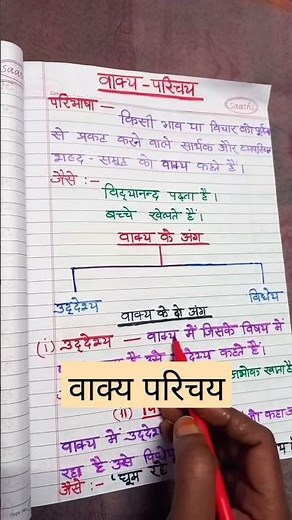 Saathi
Saathi
वाक्य-परिचय
परिभाषा —
किसी भाव या विचार को पूर्णता
से प्रकट करने वाले सार्थक और व्यवस्थित
शब्द-समूह को वाक्य कहते हैं।
जैसे :-
विद्यानन्द पढ़ता है।
बच्चे खेलते हैं।
वाक्य के अंग
उद्देश्य
विधेय
वाक्य के दो अंग
(i) उद्देश्य — वाक्य में जिसके विषय में
है उसे उद्देश्य कहते हैं।
वाक्य परिचय
(ii)
वाक्य में उद्देश्य
रहा है उसे
जैसे :- "घूम रहे